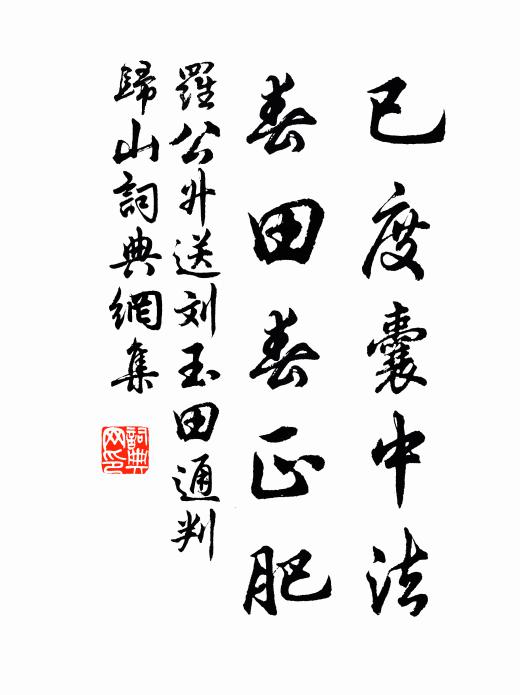 已度囊中法
春田春正肥
羅公升送刘玉田通判
歸山詞典網集
詞典网印